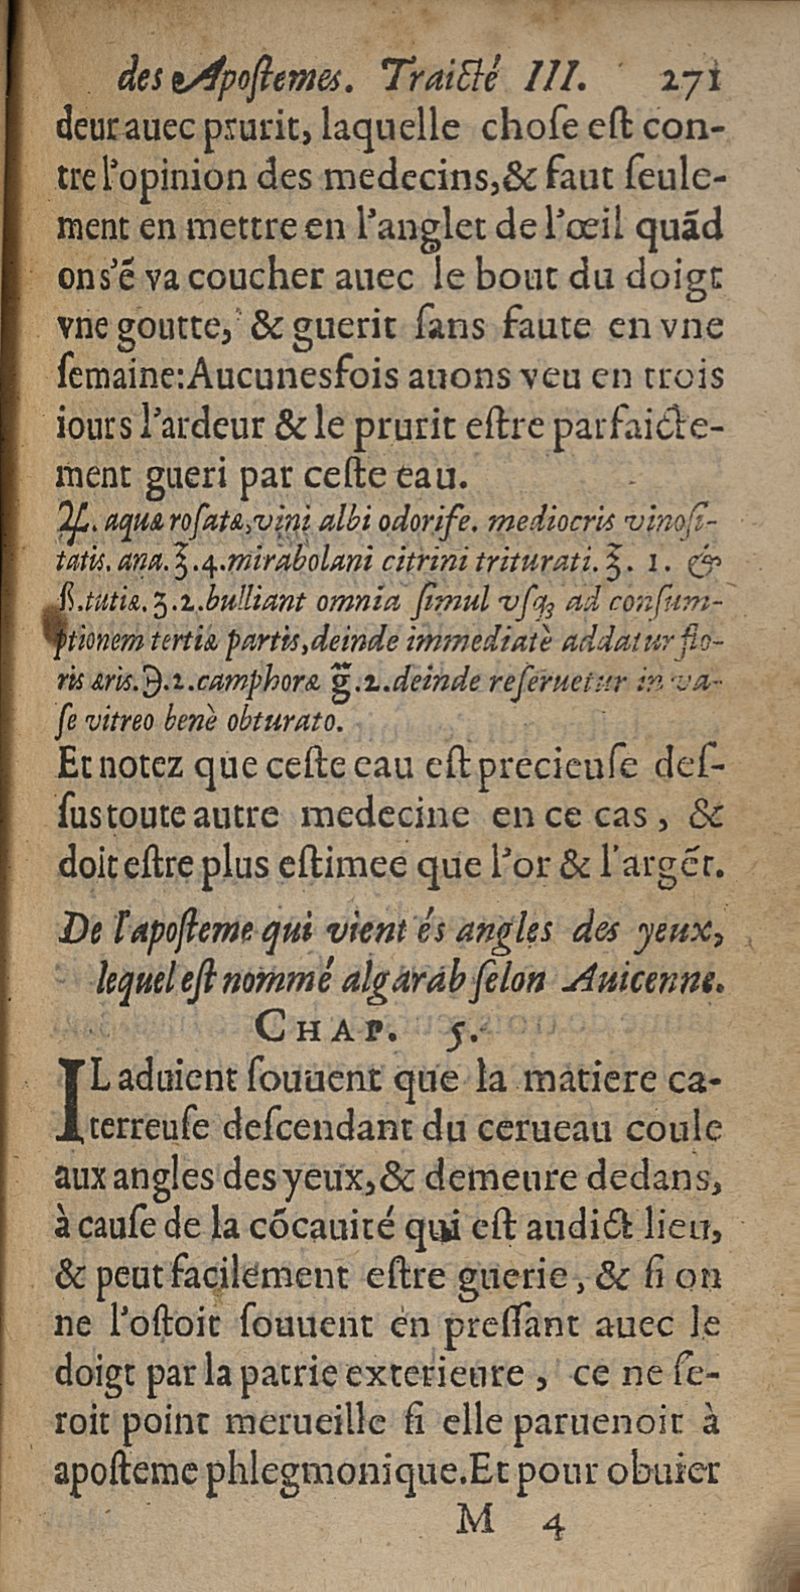 des Apoſtemes. Traicté III. 271
deur auec prurit, laquelle choſe eſt con-
tre l'opinion des medecins, & faut ſeule-
ment en mettre en l'anglet de l'œil quãd
on s'ẽ va coucher auec le bout du doigt
vne goutte, & guerit ſans faute en vne
ſemaine: Aucunesfois auons veu en trois
iours l'ardeur & le prurit eſtre parfaicte-
ment gueri par ceſte eau.
℞. aquæ roſatæ, vini albi odorife. mediocris vinoſi-
tatis. ana. ℥.4. mirabolani citrini triturati. ℥. 1. &
ß. tutiæ. ʒ.2. bulliant omnia ſimul vſq; ad conſum-
ptionem tertiæ partis, deinde immediatè addatur flo-
ris æris. ℈.2. camphoræ g̃.2. deinde reſeruetur in va-
ſe vitreo benè obturato.
Et notez que ceſte eau eſt precieuſe deſ-
ſus toute autre medecine en ce cas, &
doit eſtre plus eſtimee que l'or & l'argẽt.
De l'apoſteme qui vient és angles des yeux,
lequel eſt nommé algarab ſelon Auicenne.
CHAP. 5.
IL aduient ſouuent que la matiere ca-
terreuſe deſcendant du cerueau coule
aux angles des yeux, & demeure dedans,
à cauſe de la cõcauité qui eſt audict lieu,
& peut facilement eſtre guerie, & ſi on
ne l'oſtoit ſouuent en preſſant auec le
doigt par la patrie exterieure, ce ne ſe-
roit point merueille ſi elle paruenoit à
apoſteme phlegmonique. Et pour obuier
M 4